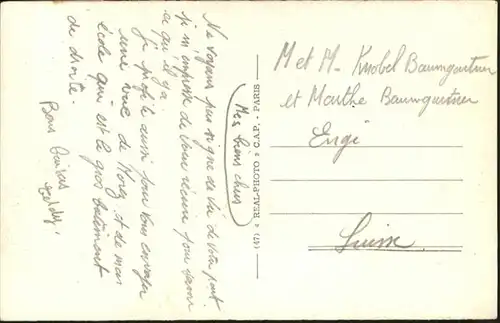 Mes biens chers
Ne voyant pas signe de vie de votre part
je m'impose de vous écrire pour savoir
ce qu'il y a.
Je profite aussi pour vous envoyer
une vue de Morez et de mon
école qui est le gros bâtiment
de droite.
Bons baisers
(47) REAL-PHOTO C.A.P. - PARIS
M et M. Knobel Baumgartner
et Marthe Baumgartner
Engi
Suisse